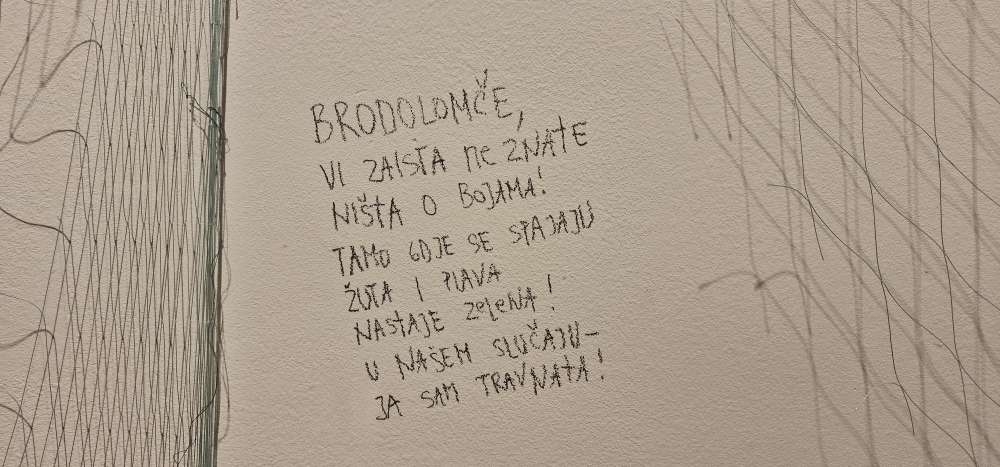 BRODOLOMČE,
VI ZAISTA NE ZNATE
NIŠTA O BOJAMA!
TAMO GDJE SE SPAJAJU
ŽUTA I PLAVA
NASTAJE ZELENA!
U NAŠEM SLUČAJU-
JA SAM TRAVNATA!